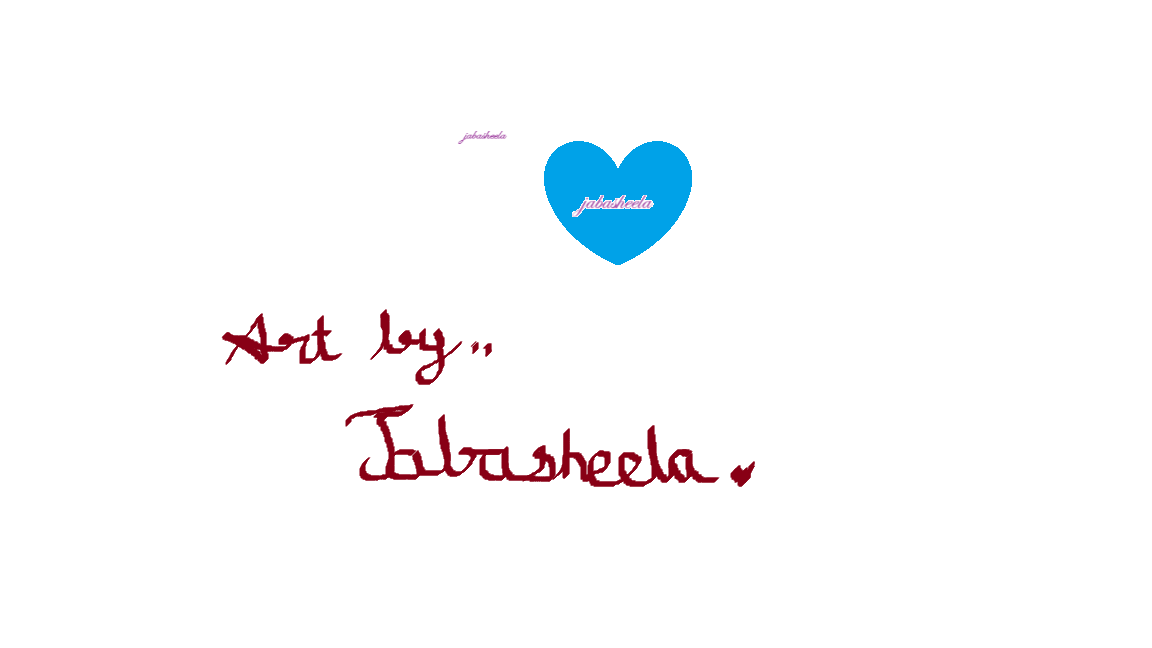 jabasheela
jabasheela
Art by..
Jabasheela